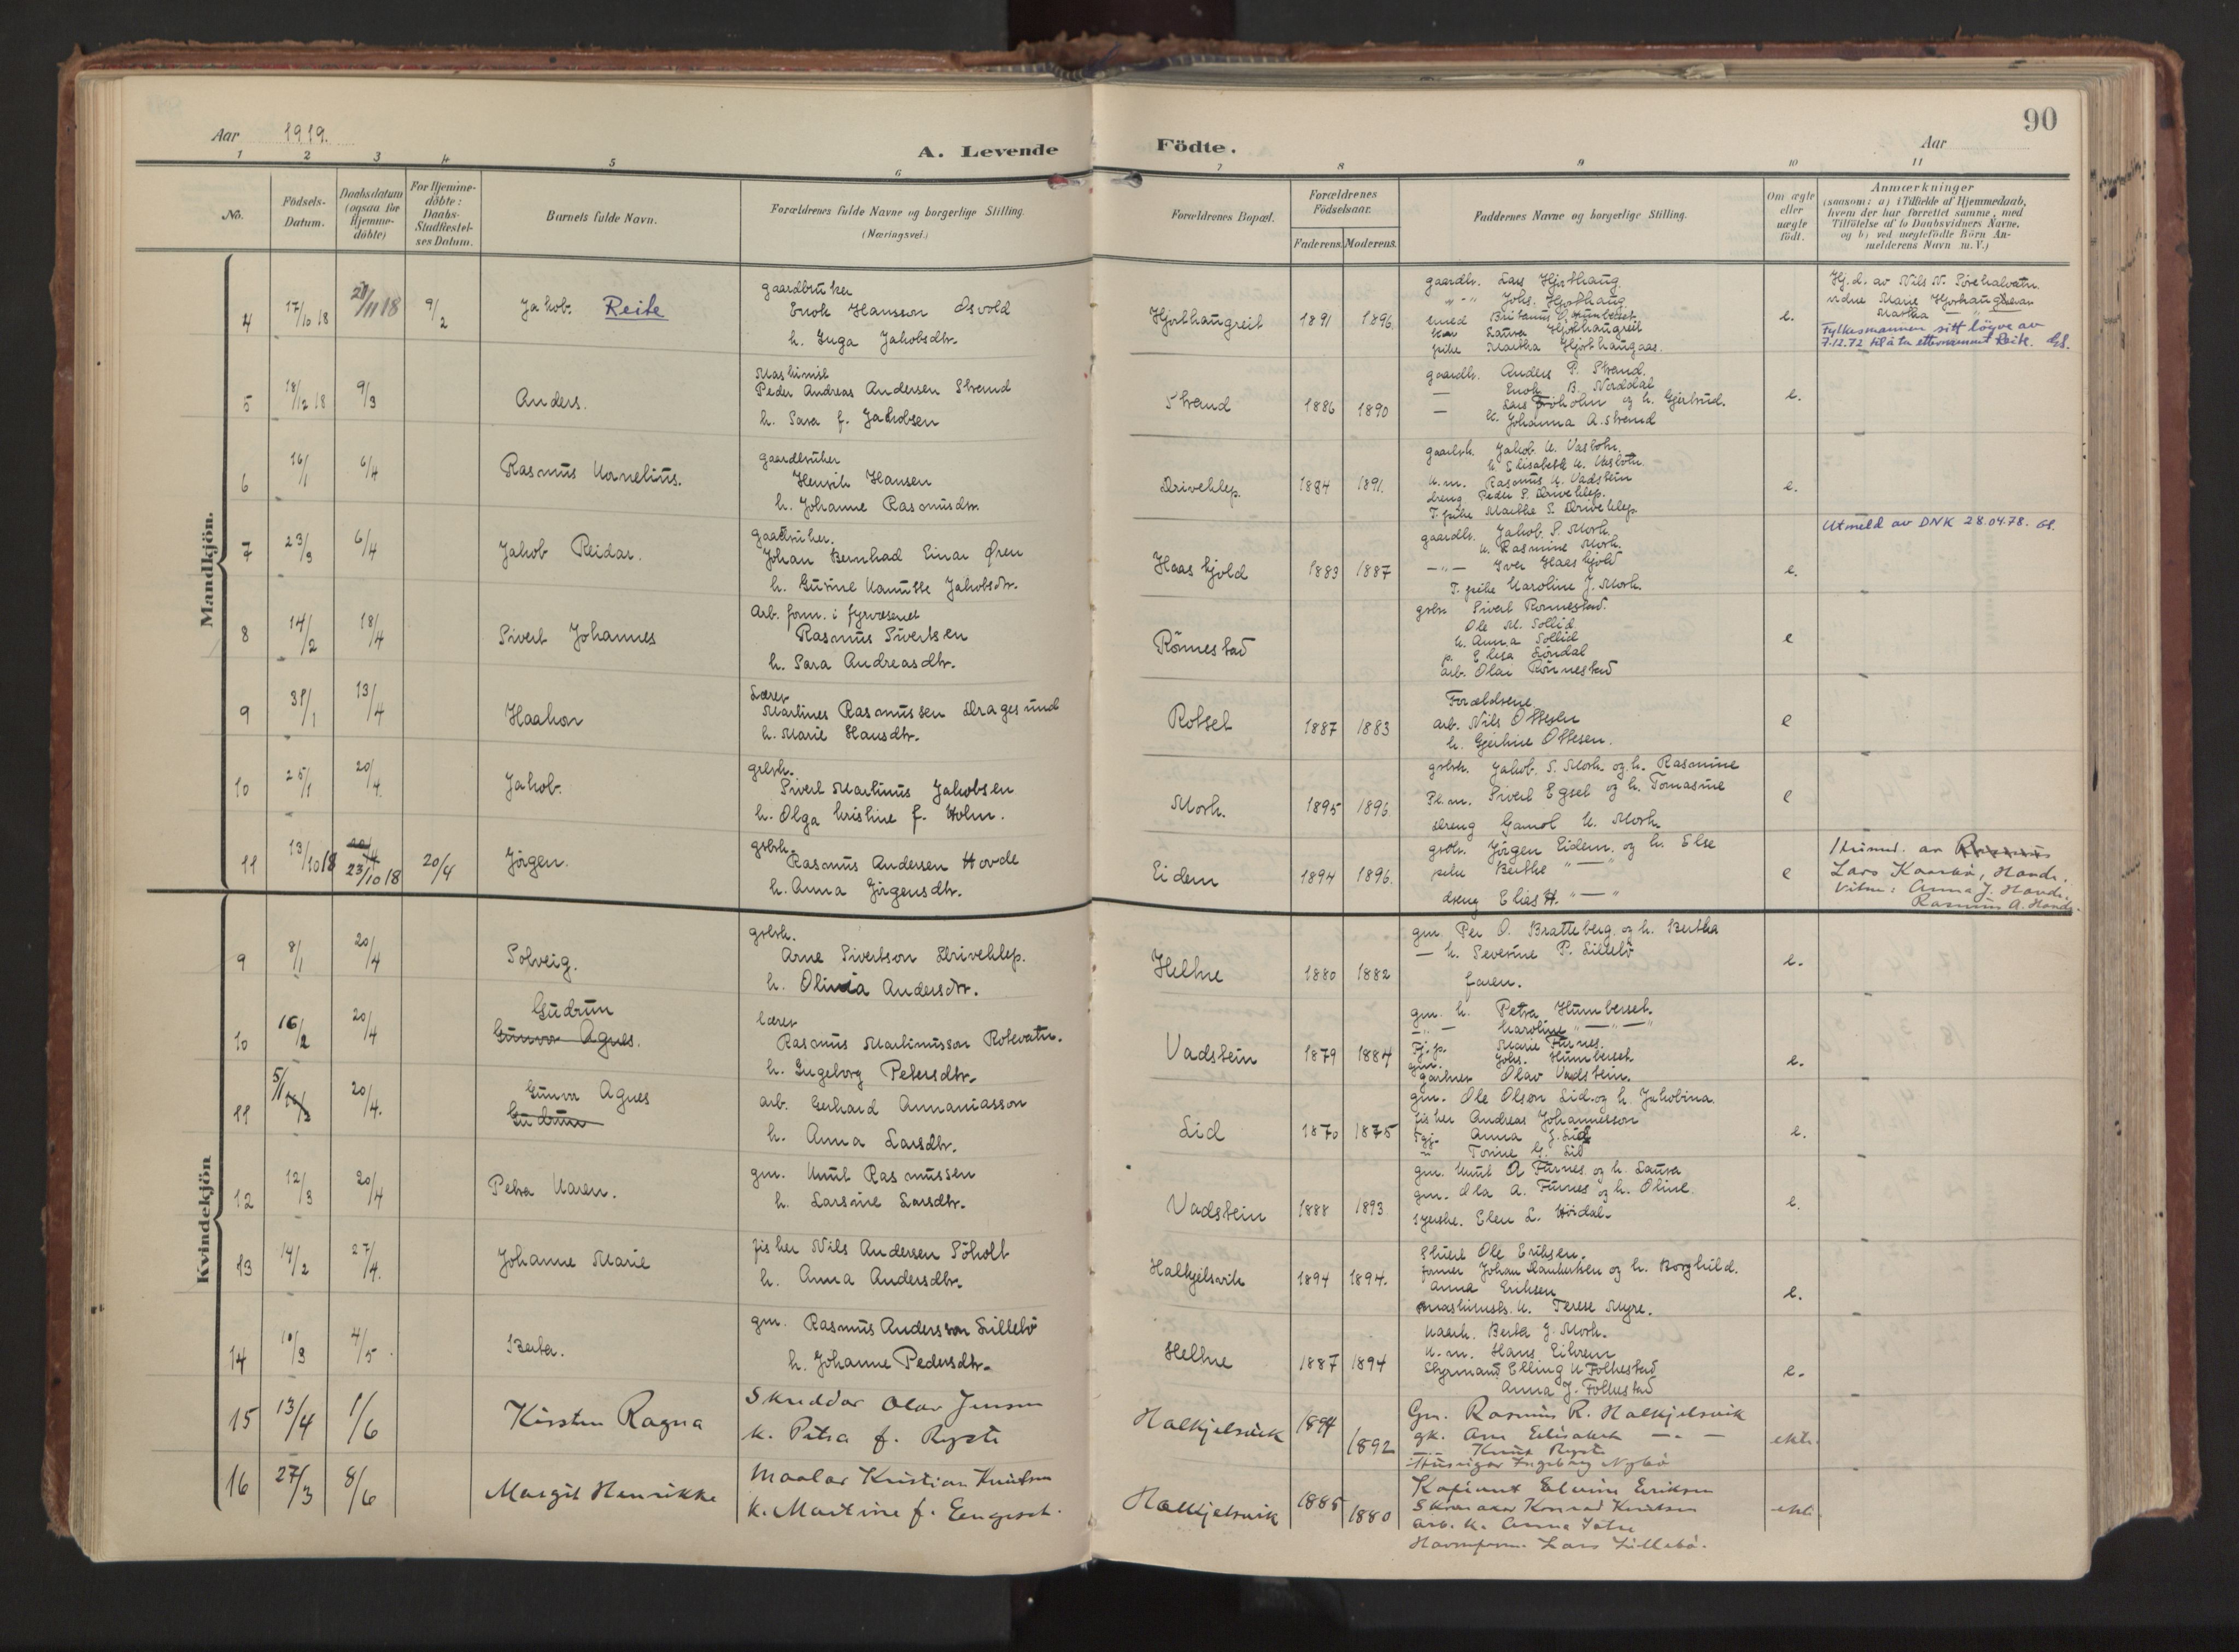 90
Aar 1919.
A. Levende Födte.
Aar
1 2 3 4 5 6 7 8 9 10 11
No.
Födsels-
Datum.
Daabsdatum
(ogsaa for
Hjemme-
döbte)
For Hjemme-
döbte:
Daabs-
Stadfæstel-
ses Datum.
Barnets fulde Navn.
Forældrenes fulde Navne og borgerlige Stilling.
(Næringsvei.)
Forældrenes Bopæl.
Forældrenes
Födselsaar.
Faderens. Moderens.
Faddernes Navne og borgerlige Stilling.
Om ægte
eller
uægte
født.
Anmærkninger
(saasom: a) i Tilfælde af Hjemmedaab,
hvem der har forrettet samme, med
Tilföielse af to Daabsvidners Navne,
og b) ved uægtefödte Börn An-
melderens Navn m. V.)
Mandkjön.
4 17/10 18 9/2 Jakob. Reite
gaardbruker
Enok Hansson Osvold
h. Inga Jakobsdtr.
Hjorthaugreit 1891 1896
gaardbr. Lars Hjorthaug.
Johs. Hjorthaug
Laura Hjorthaugreit
pike Martha Hjorthaugaas.
e.
Fylkesmannen sitt löyve av
7.12.72 til å ta etternamnet Reite.
5 18/12 18 9/3 Anders.
Maskinist
Peder Andreas Andersen Strand
h. Sara f. Jakobsen
Strand 1886 1890
gaardbr. Anders P. Strand.
— Enok B. Norddal
og h. Gjertrud.
Johanna A. Strand
e.
6 16/1 6/4 Rasmus Kornelius.
gaardbruker
Henrik Hansen
h. Johanne Rasmusdtr.
Driveklep. 1884 1891.
gaardbr. Jakob K. Vasbotn.
k. Elisabeth K. Vasbotn.
K.m. Rasmus K. Vadstein
dreng Peder S. Driveklep.
T. pike Marthe S. Driveklep
e.
7 23/3 6/4 Jakob Reidar.
gaardbruker.
Johan Bernhad Einar Øren
h. Gurine Kanutte Jakobsdtr.
Haaskjold 1883 1887
gaardbr. Jakob. S. Mork.
k. Rasmine Mork.
—"— Iver Haaskjold
T. pike Karoline J. Mork.
e.
Utmeld av DNK 28.04.78.
8 14/2 18/4 Sivert Johannes
Arb. form. i fyrvæsenet
Rasmus Sivertsen
h. Sara Andreasdtr.
Rönnestad
grbr. Sivert Rönnestad.
Ole M. Sollid
k. Anna Sollid
p. Elisa Löndal
arb. Olai Rönnestad
e
9 31/1 13/4 Haakon
Lærer
Martines Rasmussen Dragesund
h. Marie Hansdtr.
Rotset 1887 1883
Forældrene
arb. Nils Ottesen
h. Gjertine Ottesen.
e
10 25/1 20/4 Jakob.
grbrk.
Sivert Martinus Jakobsen
h. Olga Kristine f. Holm.
Mork. 1895 1896
grbrk. Jakob. S. Mork. og h. Rasmine
Sivert Egset og h. Tomasine
dreng Gamol K. Mork
e
11 13/10 18 23/10 18 20/4 Jörgen.
grbrk.
Rasmus Andersen Hovde
h. Anna Jörgensdtr.
Eidem 1894 1896.
grbr. Jörgen Eidem. og h. Else
pike Berthe "—"
dreng Elias H. "—"
e
Lars Kaarbö, Hovde.
Vitne: Anna J. Hovde
Rasmus A. Hovde.
Kvindekjön
9 8/1 20/4 Solveig.
grbrk.
Arne Sivertson Driveklep.
h. Olinia Andersdtr.
Helkne 1880 1882
gm. Per O. Bratteberg. og h. Bertha
— k. Severine P. Lillebö
faren.
e.
10 16/2 20/4 Gudrun
Gunvor Agnes.
lærer
Rasmus Martinusson Rotevatn.
h. Ingeborg Petersdtr.
Vadstein 1879 1884
gm. h. Petra Humberset.
—"— Karoline "—"—"
Marie Furnes.
gm. Johs. Humberset
gartner Olav Vadstein.
e.
11 5/1 20/4. Gunvor Agnes
Gudrun
arb. Gerhard Annaniasson
h. Anna Larsdtr.
Lid 1870 1875
gm. Ole Olson Lid. og h. Jakobina.
fisker Andreas Johannesson
Tgj. Anna J. Lid
" Torine G. Lid
e.
12 12/3 20/4 Petra Karen.
gm. Knut Rasmussen
h. Larsine Larsdtr.
Vadstein 1888 1893
gm. Knut A Furnes og h. Laura
gm. Ola A. Furnes og h. Oline.
syerske. Elen L. Höidal.
e.
13 14/2 27/4. Johanne Marie
fisker Nils Andersen Söholt
h. Anna Andersdtr.
Halkjelsvik 1894 1894.
Ole Eriksen.
Johan Danbertsen og h. Borghild.
Anna Eriksen
maskinisth. K. Terese Myre.
e.
14 10/3 4/5 Berta.
gm. Rasmus Andersson Lillebö
h. Johanne Pedersdtr.
Helkne 1887 1894
Berta J. Mork.
K.m. Hans Eikrem
Styrmand Elling K Folkestad
Anna J. Folkestad
e.
15 13/4 1/6 Kirsten Ragna
Skreddar Olav Jensen
k. Petra f. Ryste
Halkjelsvik 1894 1892
Gm. Rasmus R. Halkjelsvik
gk. Ane Elisabeth —"—
— Knut Ryste
Ingeborg Nybö
ekte.
16 27/3 8/6 Margit Henrikke
Maalar Kristian Knutsen
k. Martine f. Eengeset.
Halkjelsvik 1885 1880
Eriksen
Skomaker Konrad Knutsen
arb. k. Anna
Lars Lillebö.
ekte.